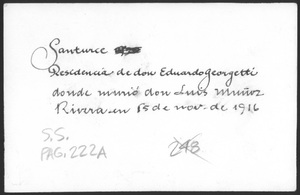 Santurce
Residencia de don Eduardo Georgetti
donde murió don Luis Muñoz
Rivera en 15 de nov. de 1916
S.S.
PAG. 222A
248